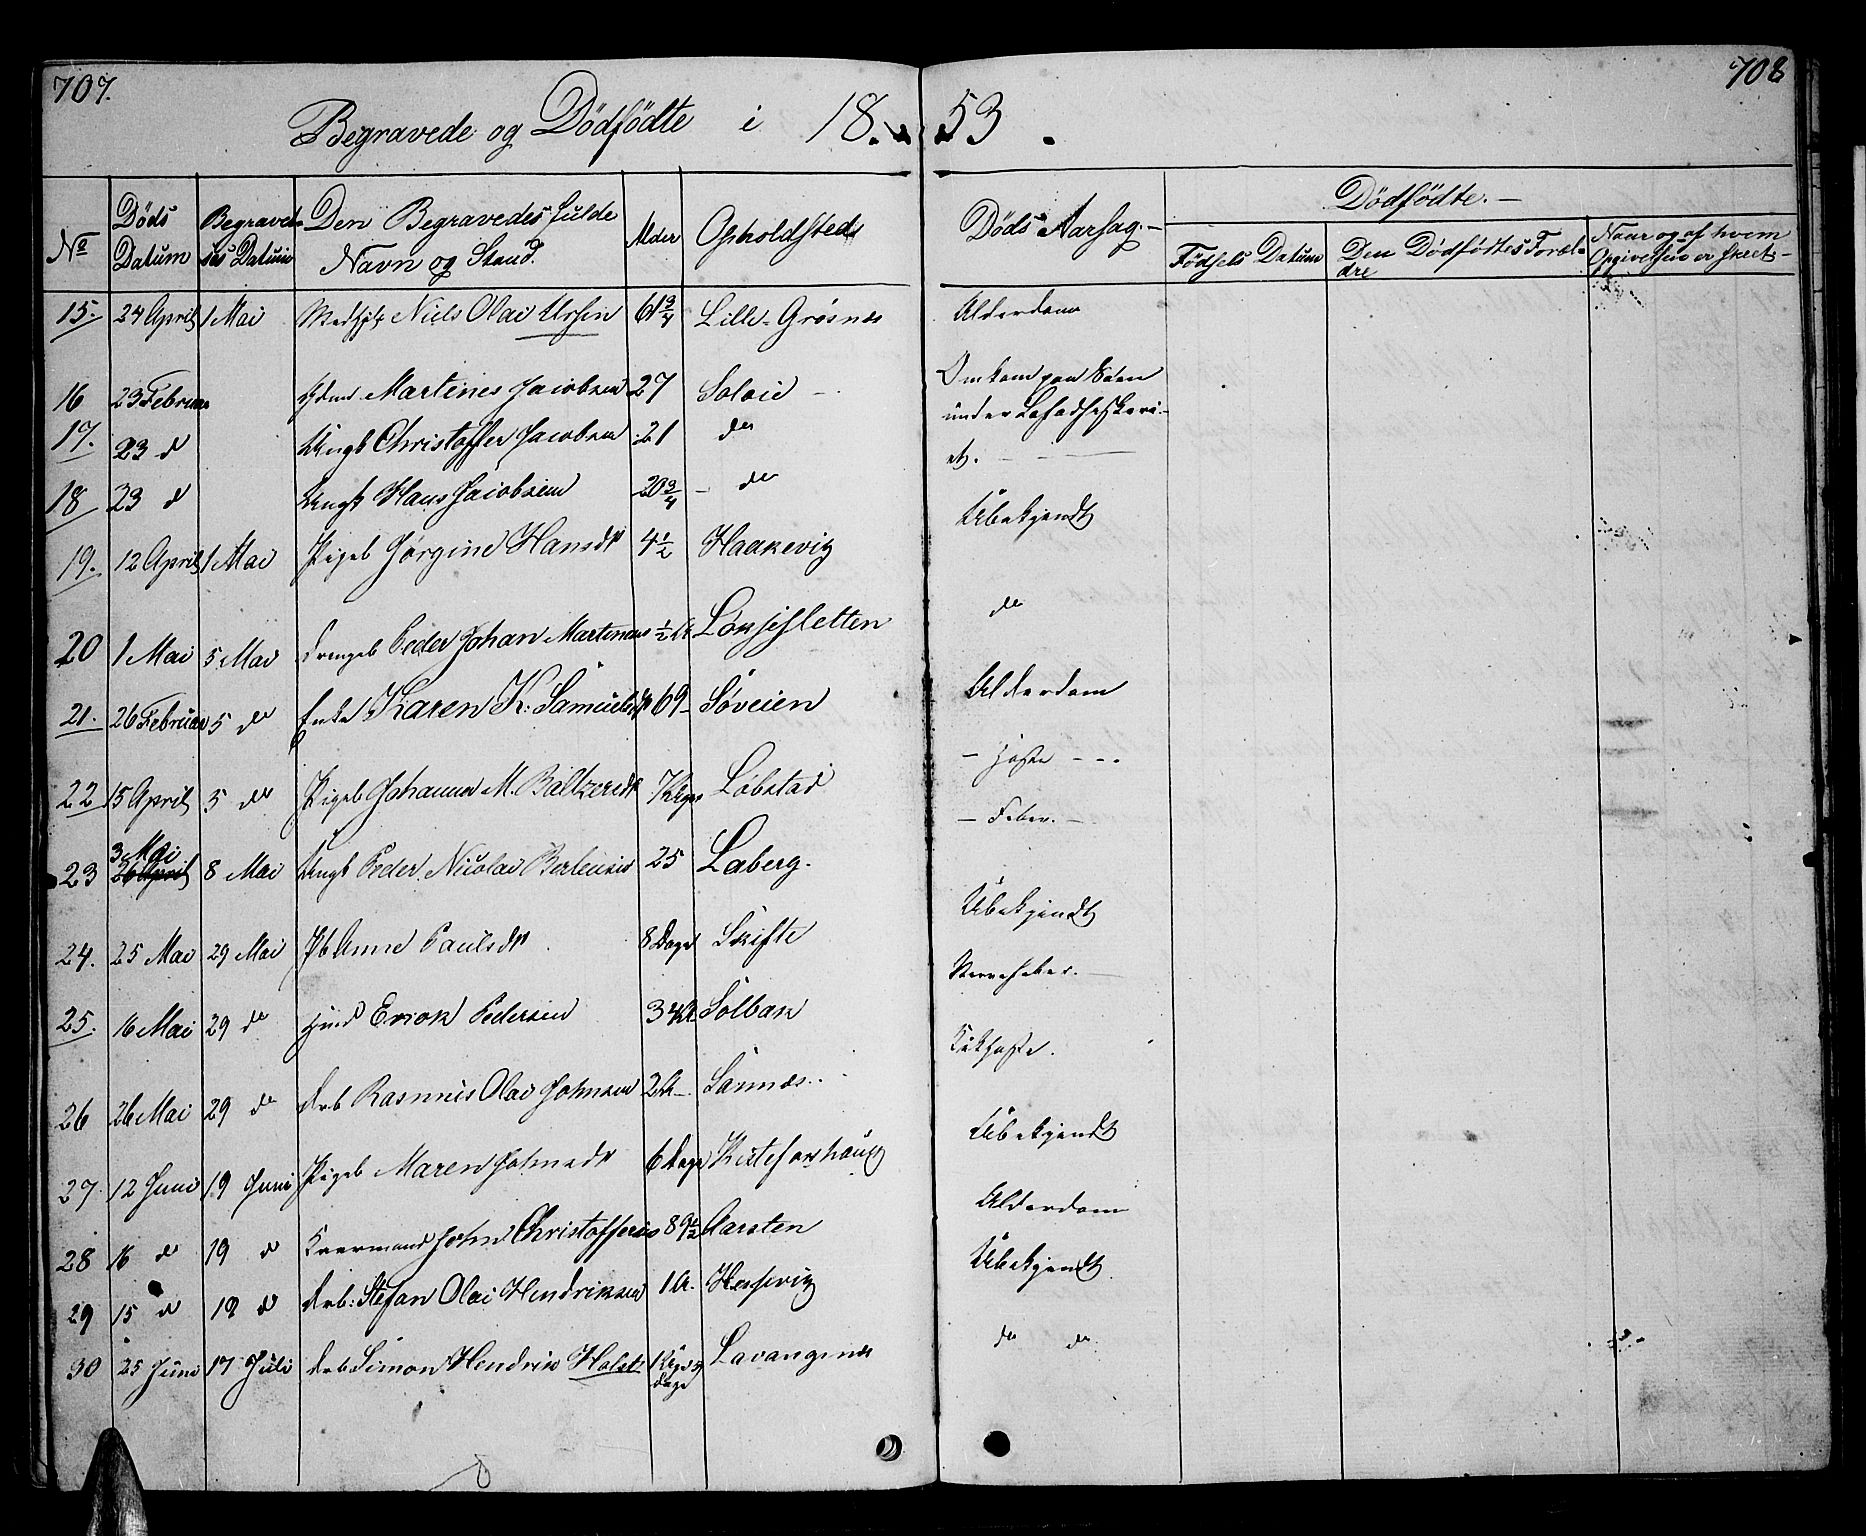 707.
708
Begravede og Dödfödte i 18 53.
No
Döds Datum
Begravelses Datum
Den Begravedes fulde Navn og Stand.
Alder
Opholdsteds
Döds Aarsag.
Dödfödte.
Födsels Datum
Den Dödfödtes Forældre
Naar og af hvem Opgivelsen er skeet
15. 24 April 1 Mai Niels Olai Ursin 61 3/4 Lille-Grøsnæs Alderdom
16 23 Februar Martines Jacobsen 27 Soløie Omkom paa Søen
17. 23 d Ungk Christoffer Jacobsen 21 do under
18 23 d Ungk Hans Jacobsen 20 3/4 do
19. 12 April 1 Mai Pigeb Jørgine Hansdr 4 1/2 Haakevig Ubekjendt
20 1 Mai 5 Mai Drengeb Peder Johan Martinus 1/2 A Løksesletten do
21. 26 Februar 5 do Enke Karen K. Samuelsdr 69 Søveien Alderdom
22 15 April 5 do Pigeb Johanna M. Baltzersdr 7 Løbstad Hoste
23 3 Mai 26 April 8 Mai Ungk Peder Nicolai Bertensen 25 Laberg. Feber.
24. 25 Mai 29 Mai Pb Anne Paulsdr 8 Dage Skifte Ubekjendt
25. 16 Mai 29 do Erick Pedersen 34 Solbak Nervefeber.
26 26 Mai 29 do Drb Rasmus Olai Johnsen 2 A Sannæs Kikhoste.
27. 12 Juni 19 Juni Pigeb Maren Johnsdr 6 Dage Ubekjendt
28 16 d 19 d Kaarmand John Christoffersen 89 1/2 Aarsten Alderdom
29 15 d 19 d Drb: Stefan Olai Hendriksen 1 A. Hessevig Ubekjendt
30 25 Juni 17 Juli Drb Simon Hendrik Holst Dage Lavangsnæs do do